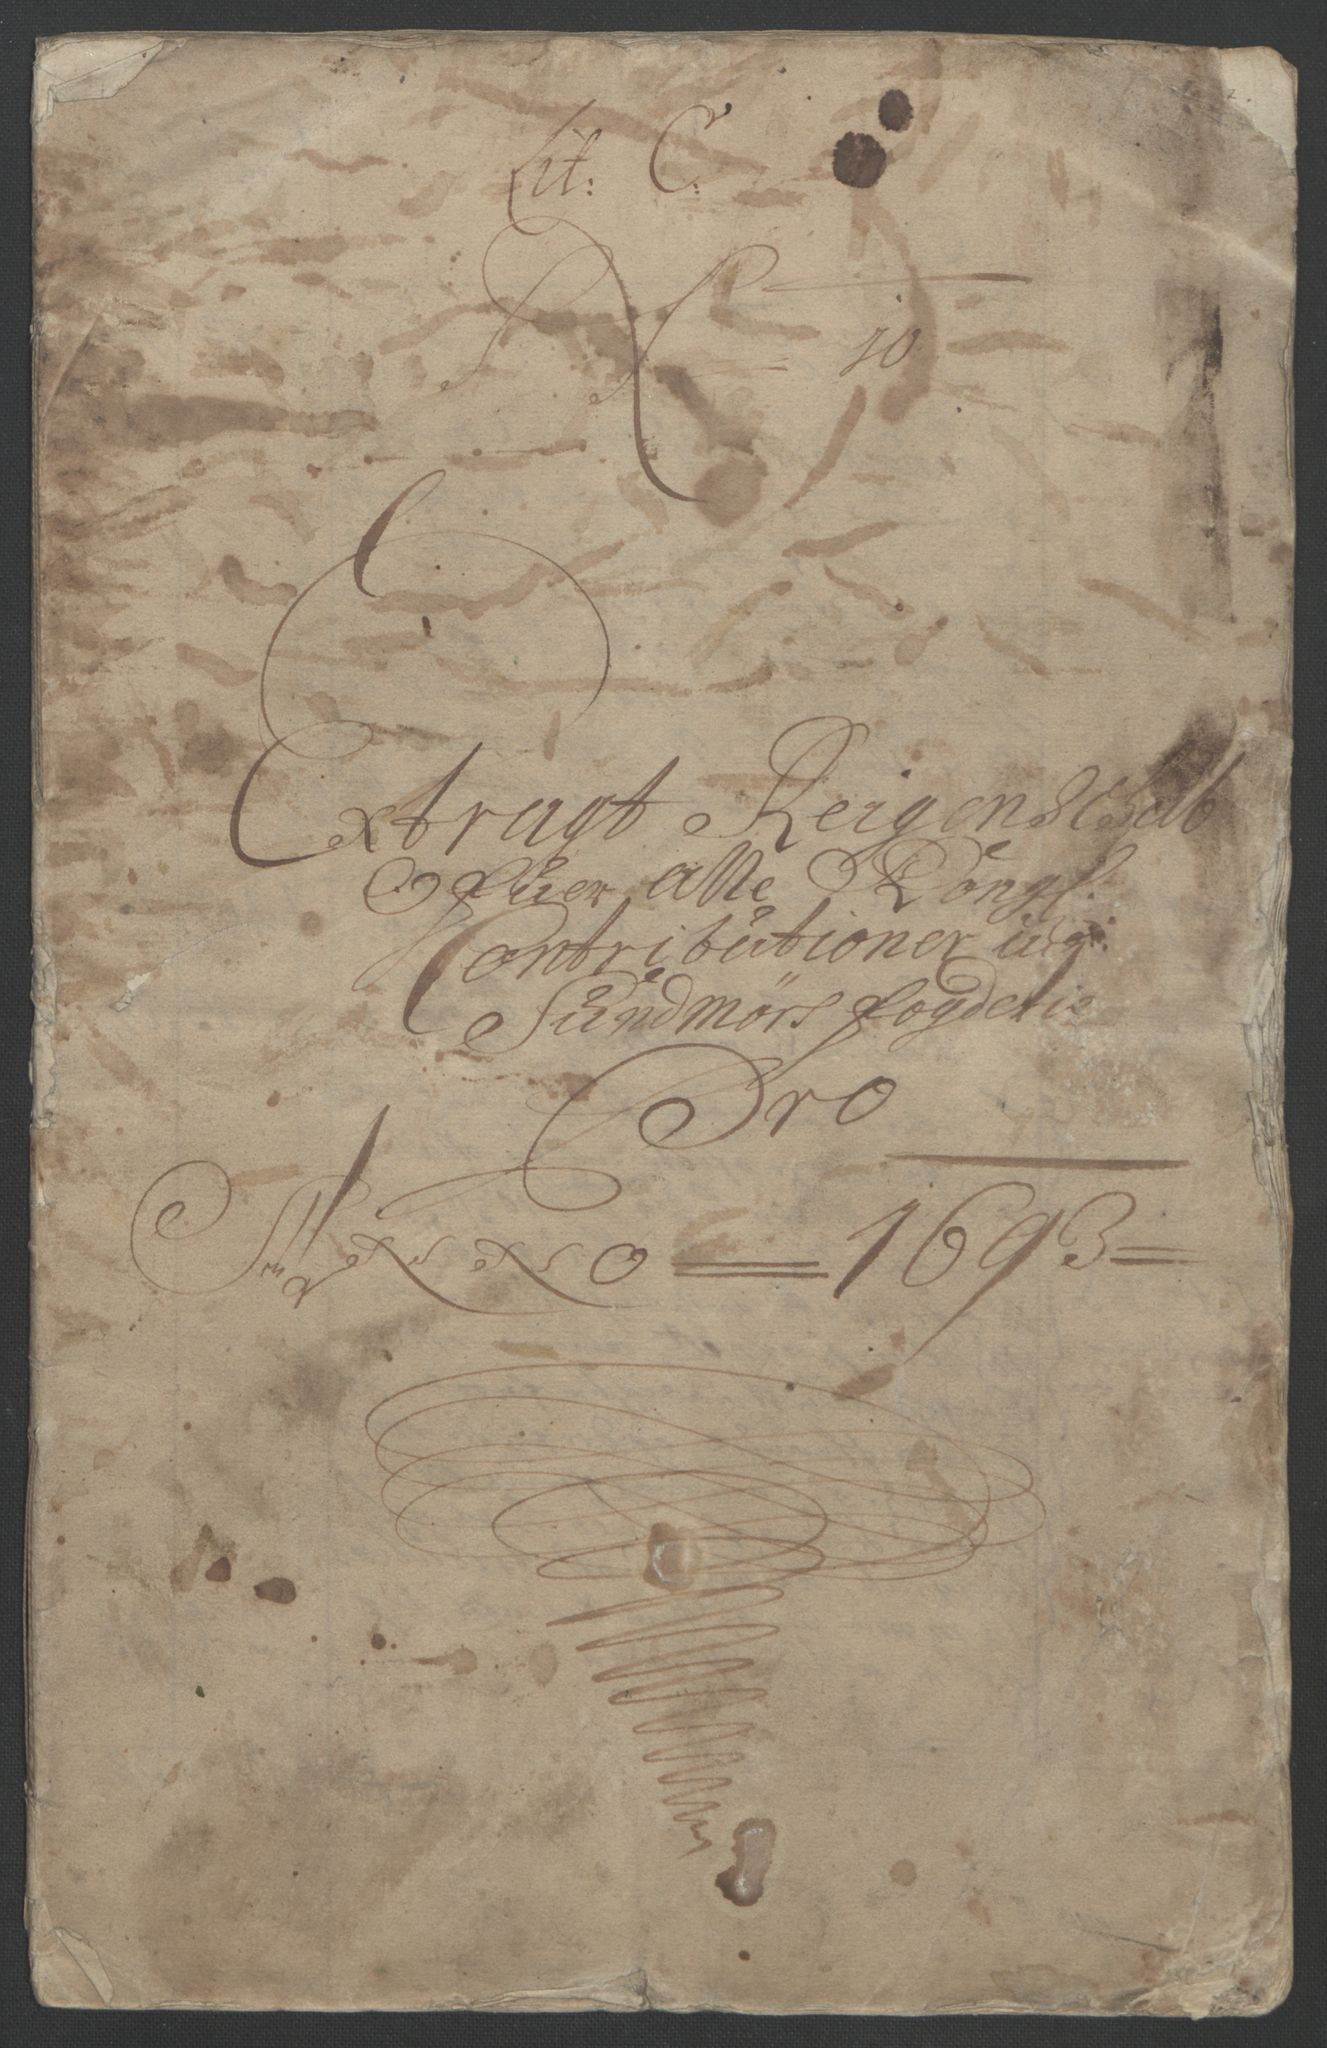 Lit: C:
N 10
Extragt Reigenschab
Ofuer alle Kongl:
Contributioner udj
Sundmörs fogderie
Pro
Anno 1693